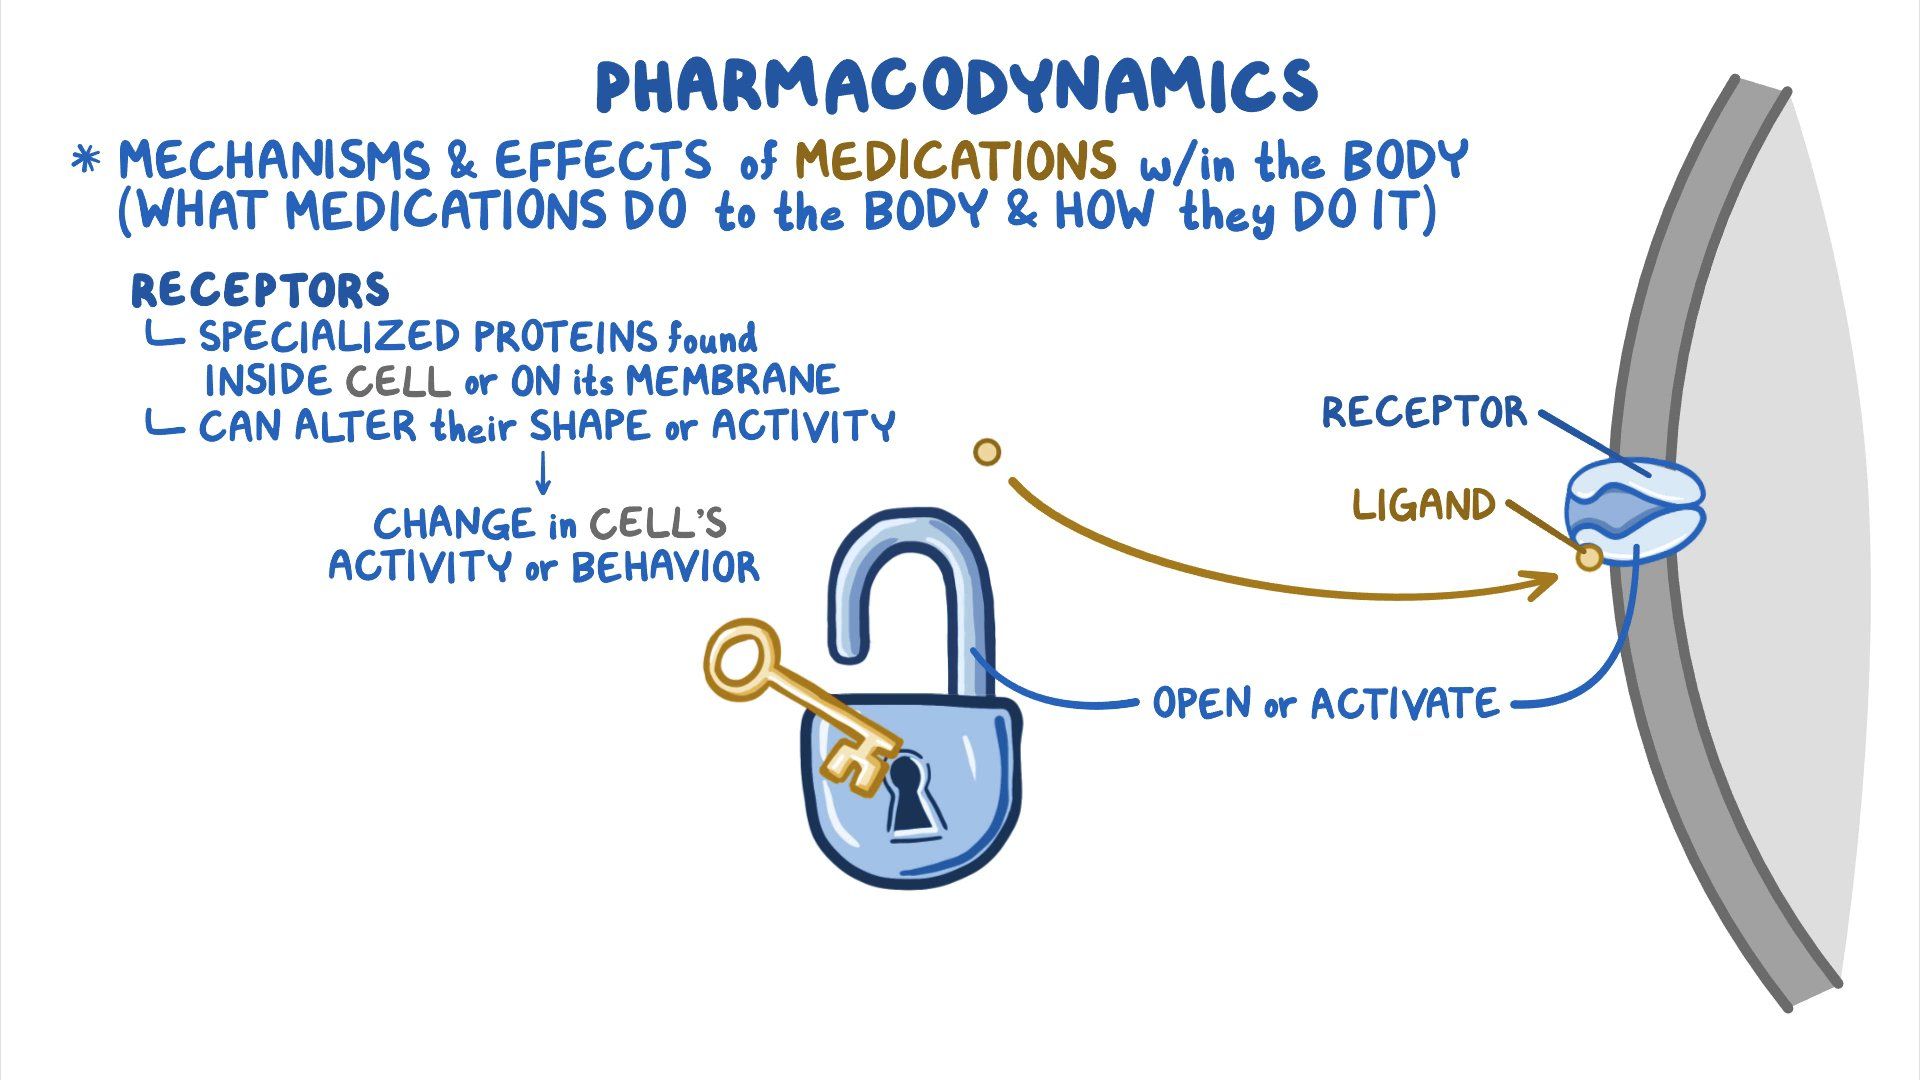 PHARMACODYNAMICS
* MECHANISMS & EFFECTS of MEDICATIONS w/in the BODY
(WHAT MEDICATIONS DO to the BODY & HOW they DO IT)
RECEPTORS
SPECIALIZED PROTEINS found
INSIDE CELL or ON its MEMBRANE
CAN ALTER their SHAPE or ACTIVITY
↓
CHANGE in CELL'S
ACTIVITY or BEHAVIOR
RECEPTOR
LIGAND
OPEN or ACTIVATE